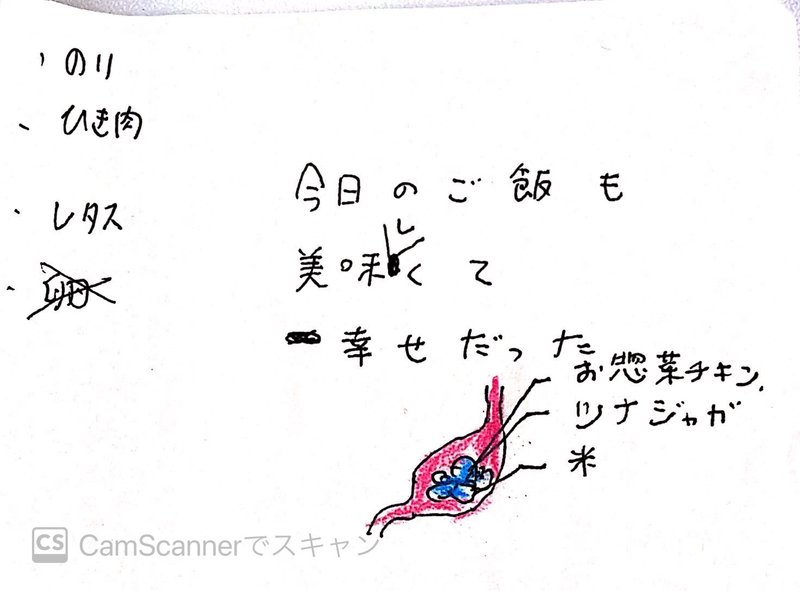 ・のり
・ひき肉
・レタス
今日のご飯も
美味しくて
幸せだった
お惣菜チキン
ツナジャガ
米
CS CamScannerでスキャン